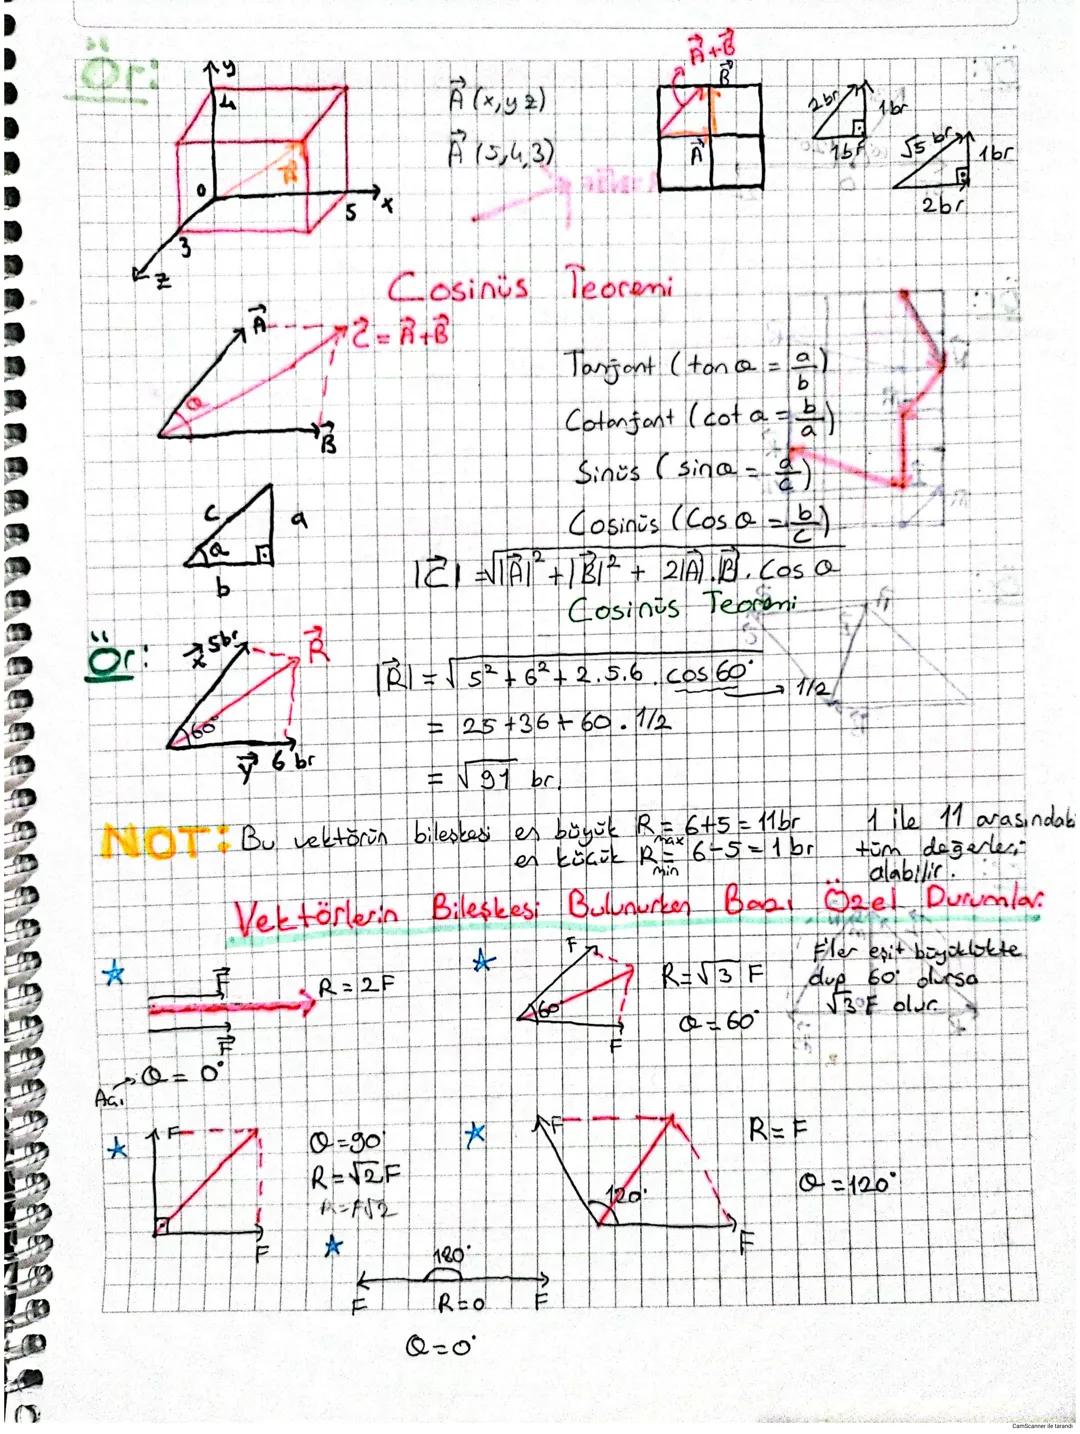 Ör:
y
4
0
5
x
3
z
A
A (x,y z)
A (5,4,3)
A+B
B
A
2br
1br
1br
√5 br
1br
2br
Cosinüs Teoremi
A
C = A+B
Q
B
Tanjant (tan Q = a/b)
Cotanjant (cot a = b/a)
Sinüs (sin a = a/c)
Cosinüs (Cos Q = b/c)
c
a
a
b
|C| = √|A|² + |B|² + 2|A|.|B|. Cos Q
Cosinüs Teoremi
Ör:
x 5br
R
60°
y 6 br
|R| = √5² + 6² + 2.5.6 . cos 60° → 1/2
= 25+36+60 . 1/2
= √91 br.
NOT: Bu vektörün bileşkesi en büyük Rmax = 6+5 = 11br
en küçük Rmin = 6-5 = 1 br
1 ile 11 arasındaki
tüm değerleri
alabilir.
Vektörlerin Bileşkesi Bulunurken Bazı Özel Durumlar:
F
R = 2F
F
Açı → Q = 0°
F
60
F
R=√3 F
Q = 60°
F'ler eşit büyüklükte
olup 60° olursa
√3 F olur.
F
F
Q=90°
R=√2F
R=F√2
F
120°
F
R=F
Q=120°
180°
F
R=0
F
Q=0°
CamScanner ile tarandı